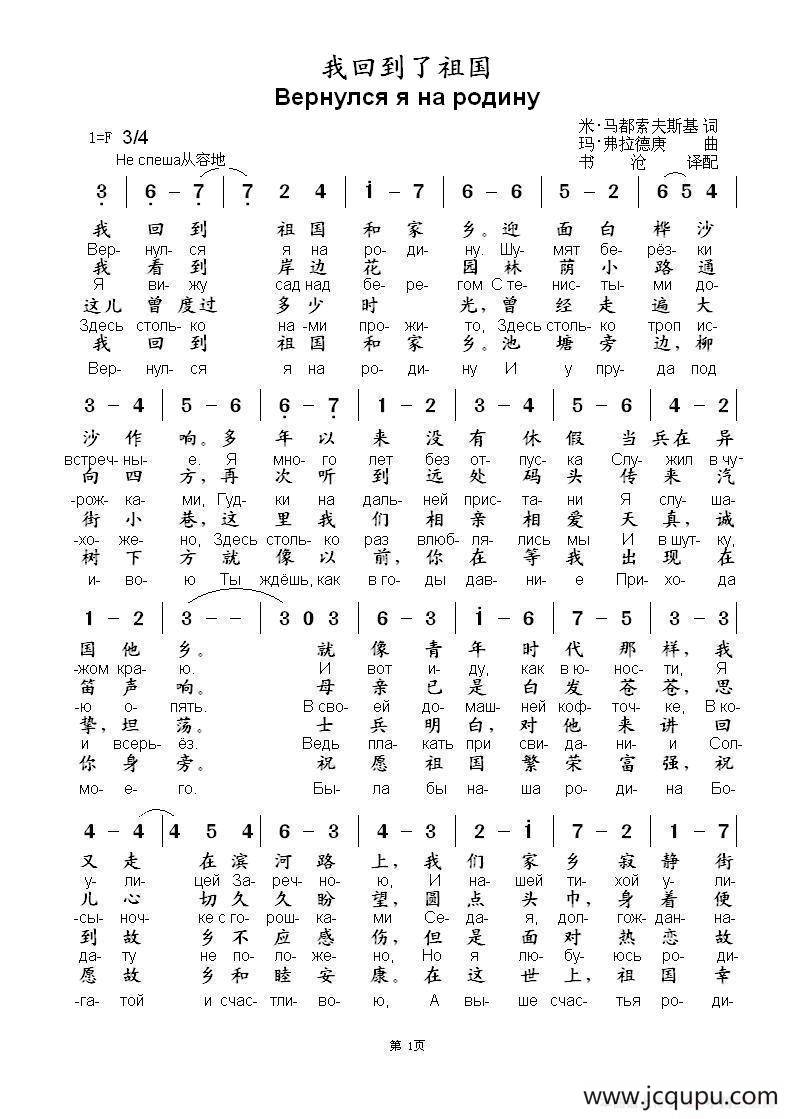 我回到了祖国
Вернулся я на родину
米·马都索夫斯基 词
1=F 3/4
玛·弗拉德庚 曲
书 沧 译配
Не спеша从容地
3 | 6 – 7 | 7 2 4 | i – 7 | 6 – 6 | 5 – 2 | 6 5 4 |
我 回 到 祖 国 和 家 乡。迎 面 白 桦 沙
Вер- нул- ся я на ро- ди- ну. Шу- мят бе- рёз- ки
我 看 到 岸 边 花 园 林 荫 小 路 通
Я ви- жу сад над бе- ре- гом С те- нис- ты- ми до-
这 儿 曾 度 过 多 少 时 光, 曾 经 走 遍 大
Здесь столь- ко на -ми про- жи- то, Здесь столь- ко троп ис-
我 回 到 祖 国 和 家 乡。池 塘 旁 边, 柳
Вер- нул- ся я на ро- ди- ну И у пру- да под
3 – 4 | 5 – 6 | 6 – 7 | 1 – 2 | 3 – 4 | 5 – 6 | 4 – 2 |
沙 作 响。多 年 以 来 没 有 休 假 当 兵 在 异
встреч- ны- е. Я мно- го лет без от- пус- ка Слу- жил в чу-
向 四 方, 再 次 听 到 远 处 码 头 传 来 汽
-рож- ка- ми, Гуд- ки на даль- ней прис- та- ни Я слу- ша-
街 小 巷, 这 里 我 们 相 亲 相 爱 天 真, 诚
-хо- же- но, Здесь столь- ко раз влюб- ля- лись мы И в шут- ку,
树 下 方 就 像 以 前, 你 在 等 我 出 现 在
и- во- ю Ты ждёшь, как в го- ды дав- ни- е При- хо- да
1 – 2 | 3 – – | 3 0 3 | 6 – 3 | i – 6 | 7 – 5 | 3 – 3 |
国 他 乡。 就 像 青 年 时 代 那 样, 我
-жом кра- ю. И вот и- ду, как в ю- нос- ти, Я
笛 声 响。 母 亲 已 是 白 发 苍 苍, 思
-ю о- пять. В сво- ей до- маш- ней коф- точ- ке, В ко-
挚, 坦 荡。 士 兵 明 白, 对 他 来 讲 回
и всерь- ёз. Ведь пла- кать при сви- да- ни- и Сол-
你 身 旁。 祝 愿 祖 国 繁 荣 富 强, 祝
мо- е- го. Бы- ла бы на- ша ро- ди- на Бо-
4 – 4 | 4 5 4 | 6 – 3 | 4 – 3 | 2 – i | 7 – 2 | 1 – 7 |
又 走 在 滨 河 路 上, 我 们 家 乡 寂 静 街
у- ли- цей За- реч- но- ю, И на- шей ти- хой у- ли-
儿 心 切 久 久 盼 望, 圆 点 头 巾, 身 着 便
-сы- ноч- ке с го- рош- ка- ми Се- да- я, дол- гож- дан- на-
到 故 乡 不 应 感 伤, 但 是 面 对 热 恋 故
да- ту не по- ло- же- но, Но я лю- бу- юсь ро- ди-
愿 故 乡 和 睦 安 康。在 这 世 上, 祖 国 幸
-га- той и счас- тли- во- ю, А вы- ше счас- тья ро- ди-
第 1页
www.jcqupu.com